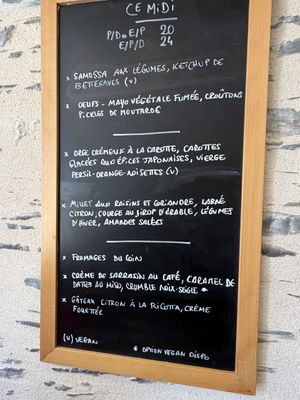 CE MIDI
P/D ou E/P 20
E/P/D 24
x SAMOSSA AUX LÉGUMES, KETCHUP DE
BETTERAVES (V)
x OEUFS - MAYO VÉGÉTALE FUMÉE, CROÛTONS
PICKLES DE MOUTARDE
x ORGE CRÉMEUX À LA CAROTTE, CAROTTES
GLACÉES AUX ÉPICES JAPONAISES, VIERGE
PERSIL-ORANGE-NOISETTES (V)
x MILLET AUX RAISINS ET CORIANDRE, LABNÉ
CITRON, COURGE AU SIROP D'ÉRABLE, LÉGUMES
D'HIVER, AMANDES SALÉES
x FROMAGES DU COIN
x CRÈME DE SARRASIN AU CAFÉ, CARAMEL DE
DATTES AU MISO, CRUMBLE NOIX-SEIGLE *
x GÂTEAU CITRON À LA RICOTTA, CRÈME
FOUETTÉE
(V) VEGAN
* OPTION VEGAN DISPO